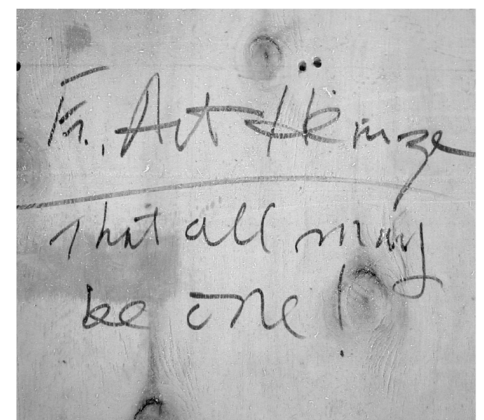 Fr. Art Heinze
that all may
be one!